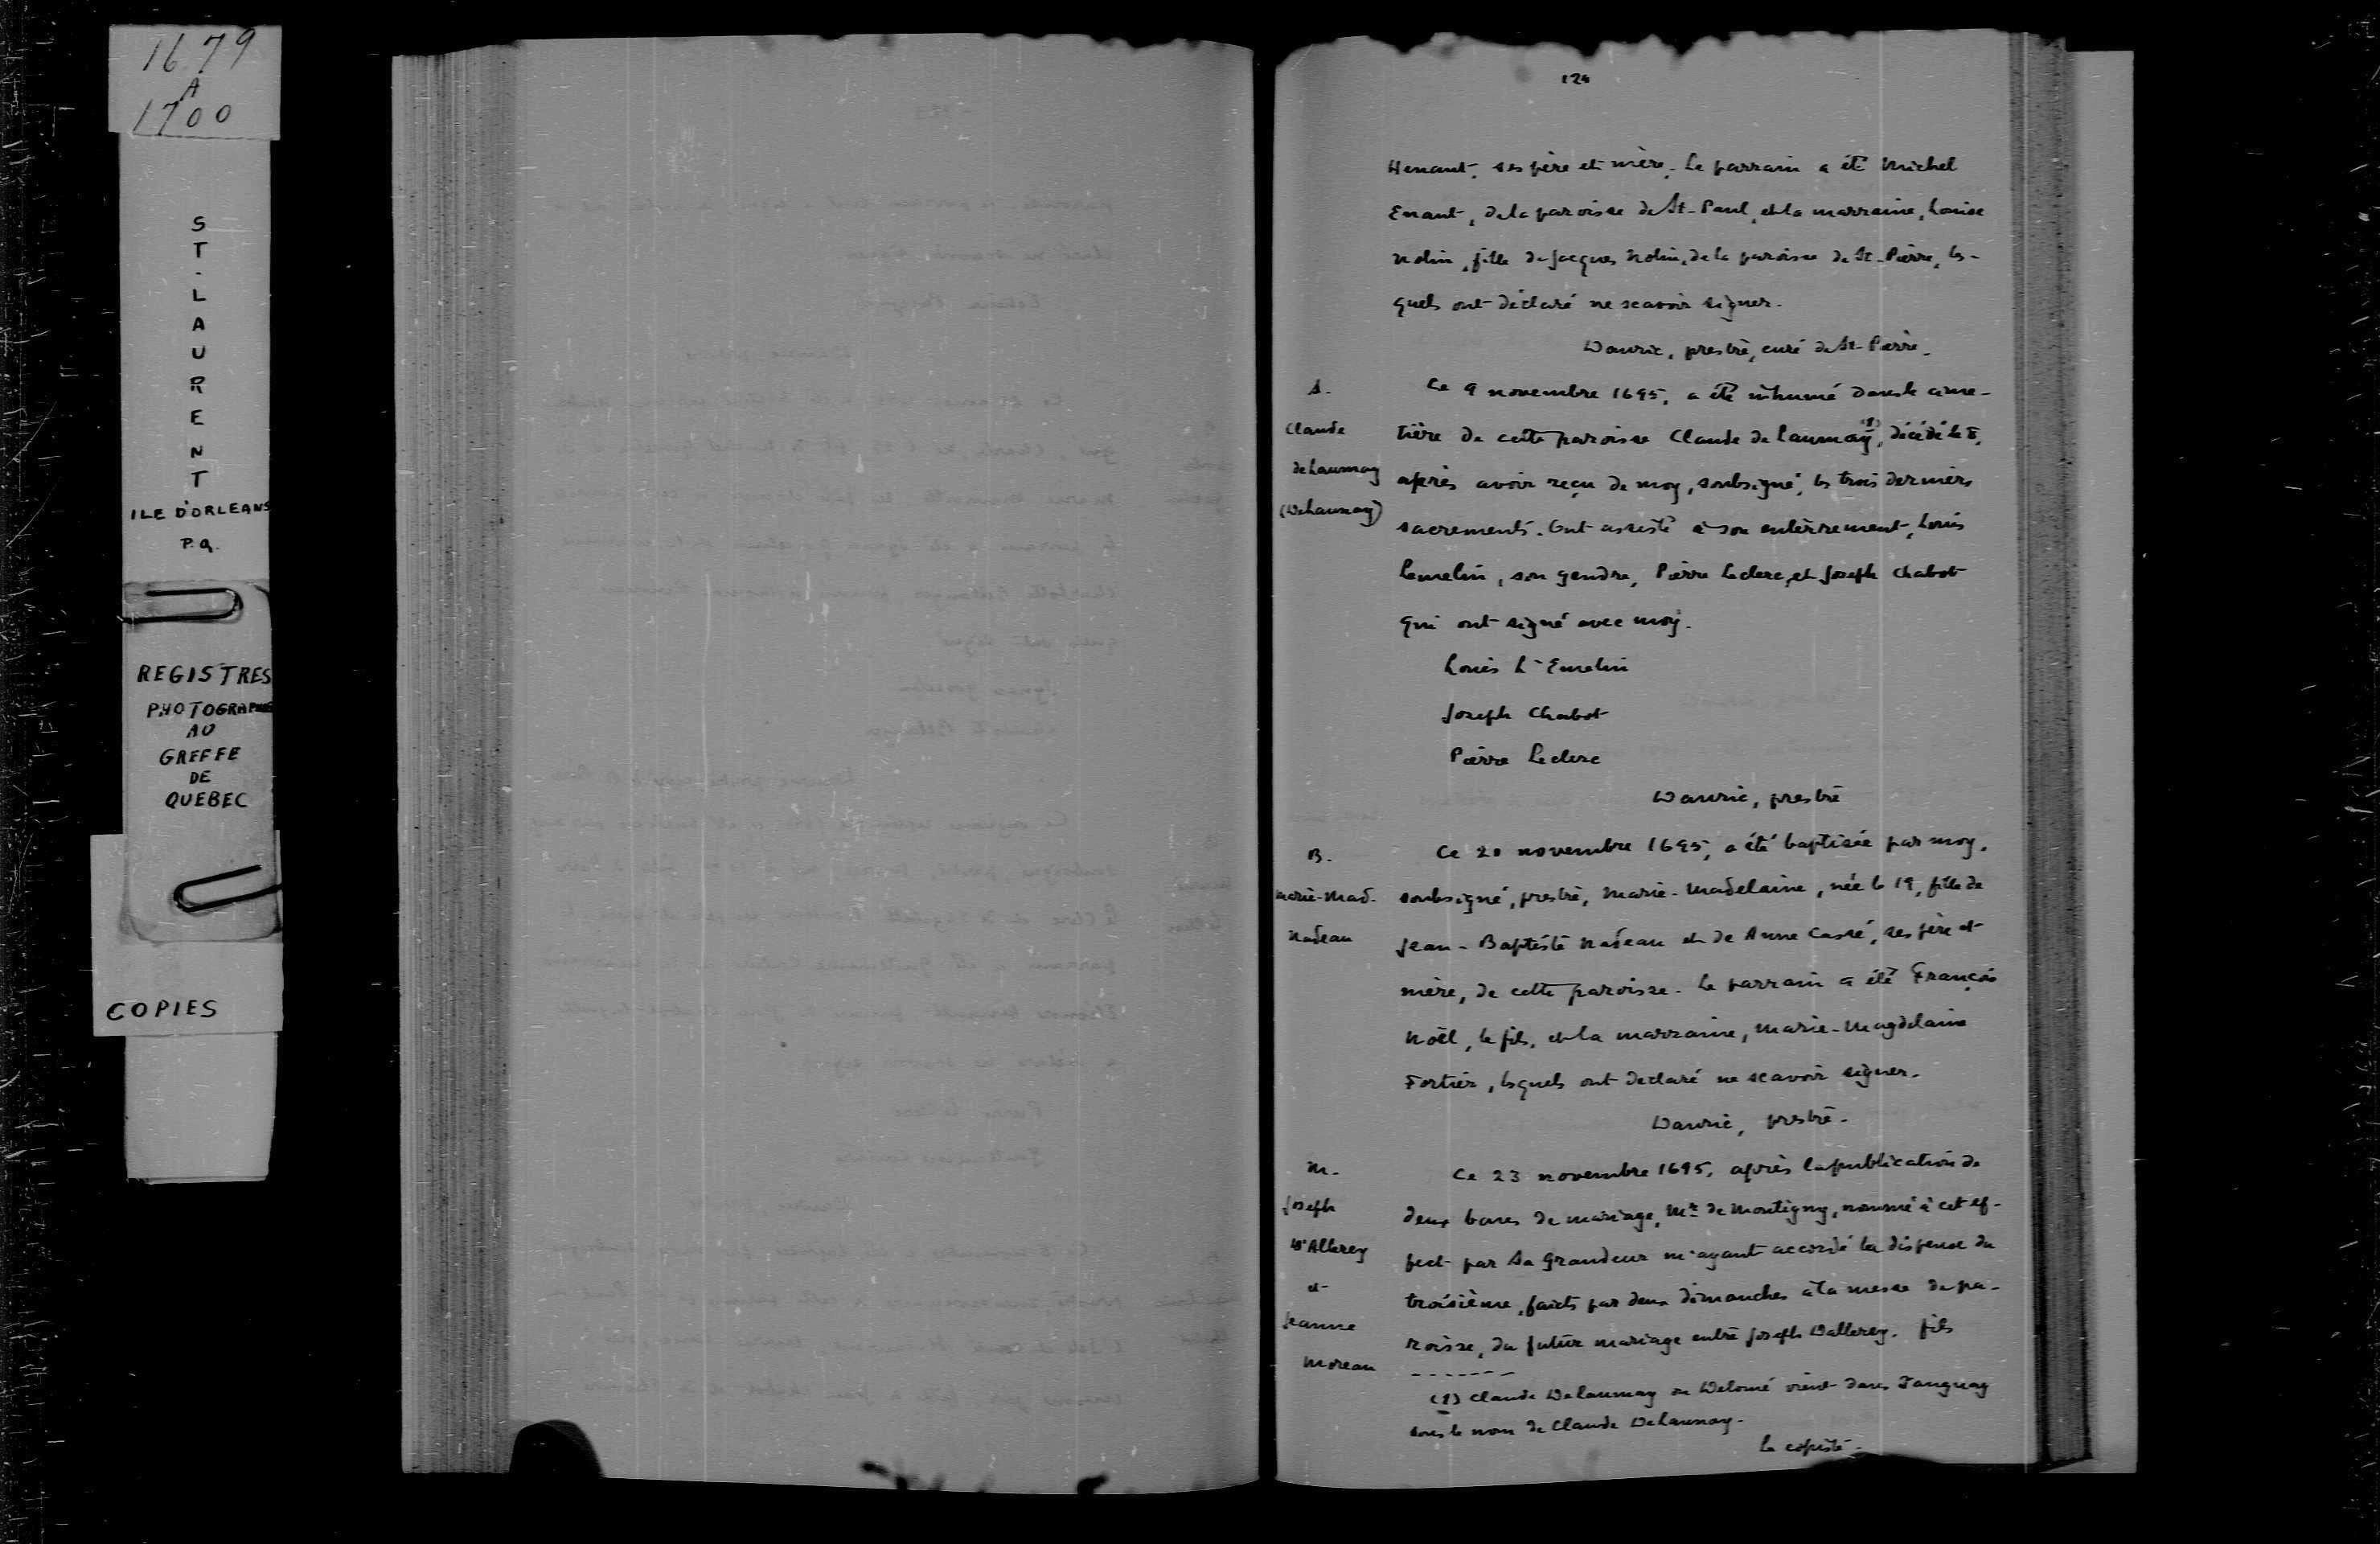 1679
A
1700
ST. LAURENT
ILE D'ORLEANS
P.Q.
REGISTRES
PHOTOGRAPHIES
AU
GREFFE
DE
QUEBEC
COPIES
124
Henant, ses père et mère. Le parrain a été Michel
Enant, de la paroisse de St-Paul, et la marraine, Louise
Nolin, fille de Jacques Nolin, de la paroisse de St-Pierre, les-
quels ont déclaré ne scavoir signer.
Dauric, prestre, curé de St-Pierre.
S.
Claude
de Laumay
(Delaunay)
Ce 9 novembre 1695, a été inhumé dans le cime-
tière de cette paroisse Claude de Laumay (1), décédé le 8,
après avoir reçu de moy, soubsigné, les trois derniers
sacrements. Ont assisté à son enterrement, Louis
Lemelin, son gendre, Pierre Leclerc, et Joseph Chabot
qui ont signé avec moy.
Louis L'Emelin
Joseph Chabot
Pierre Leclerc
Dauric, prestre
B.
Marie-Mad.
Nadeau
Ce 20 novembre 1695, a été baptisée par moy,
soubsigné, prestre, Marie-Madelaine, née le 19, fille de
Jean-Baptiste Nadeau et de Anne Cassé, ses père et
mère, de cette paroisse. Le parrain a été François
Noël, le fils, et la marraine, Marie-Magdelaine
Fortier, lesquels ont declaré ne scavoir signer.
Dauric, prestre.
M.
Joseph
D'Allerey
et
Jeanne
Moreau
Ce 23 novembre 1695, après la publication de
deux bans de mariage, Mr. de Montigny, nommé à cet ef-
fect par Sa Grandeur m'ayant accordé la dispense du
troisième, faicts par deux dimanches à la messe de pa-
roisse, du futur mariage entre Joseph Dallerey, fils
(1) Claude Delaumay ou Delomé vient dans Tanguay
sous le nom de Claude Delaunay.
Le copiste.